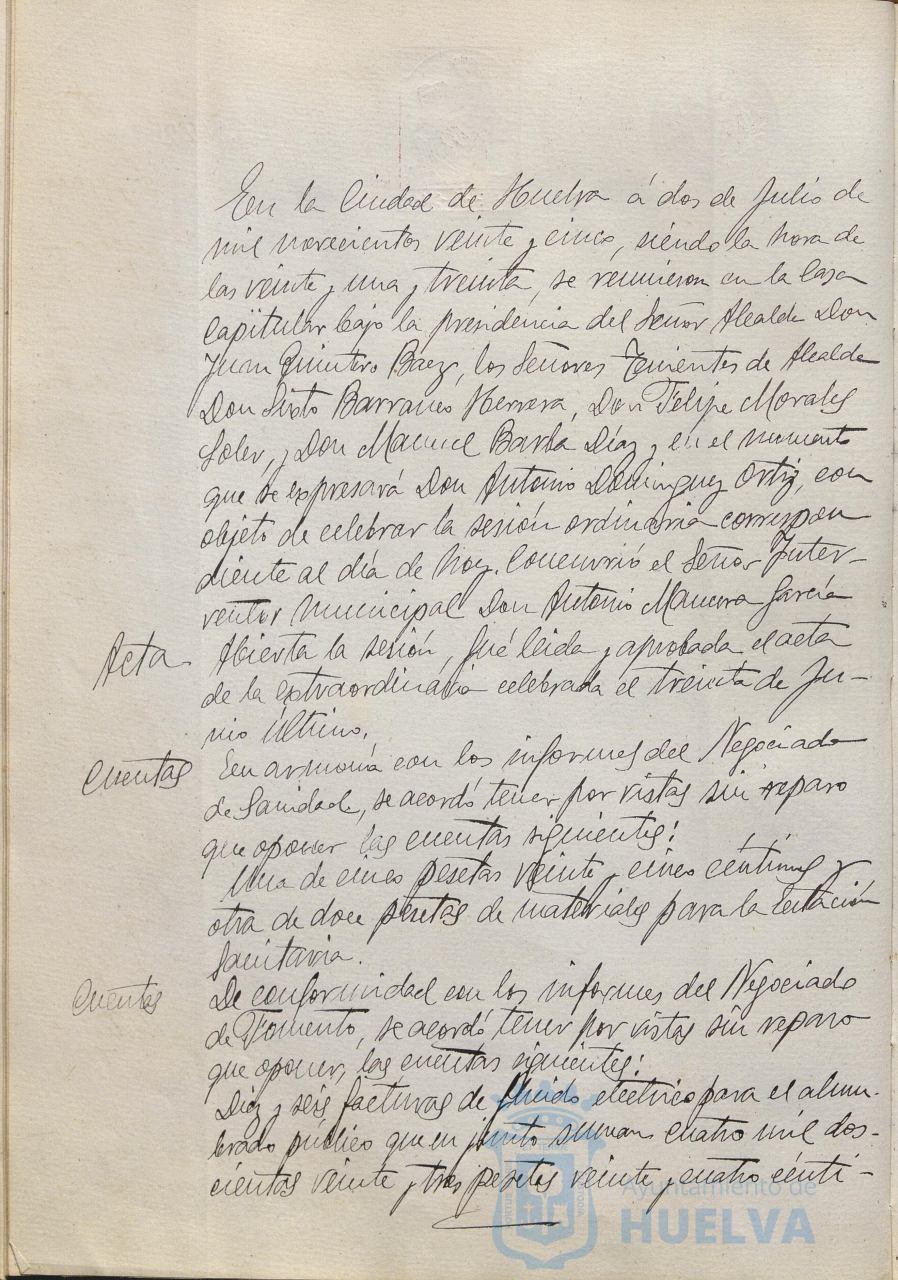 En la Ciudad de Huelva á dos de Julio de
mil novecientos veinte y cinco, siendo la hora de
las veinte y una y treinta, se reunieron en la Casa
Capitular bajo la presidencia del Señor Alcalde Don
Juan Quintero Baez, los Señores Tenientes de Alcalde
Don Sixto Barranco Herrera, Don Felipe Morales
Soler, y Don Manuel Barba Díaz y en el momento
que se expresará Don Antonio Dominguez Ortiz, con
objeto de celebrar la sesión ordinaria correspon
diente al día de hoy. Concurrió el Señor Inter-
ventor municipal Don Antonio Mancera García
Acta Abierta la sesión, fué leida y aprobada el acta
de la extraordinaria celebrada el treinta de Ju-
nio último.
Cuentas En armonía con los informes del Negociado
de Sanidad, se acordó tener por vistas sin reparo
que oponer las cuentas siguientes:
Una de cinco pesetas veinte y cinco céntimos y
otra de doce pesetas de materiales para la Estación
Sanitaria.
Cuentas De conformidad con los informes del Negociado
de Fomento, se acordó tener por vistas sin reparo
que oponer, las cuentas siguientes:
Diez y seis facturas de fluido electrico para el alum-
brado público que en junto suman cuatro mil dos-
cientas veinte y tres pesetas veinte y cuatro cénti-
Ayuntamiento de
HUELVA